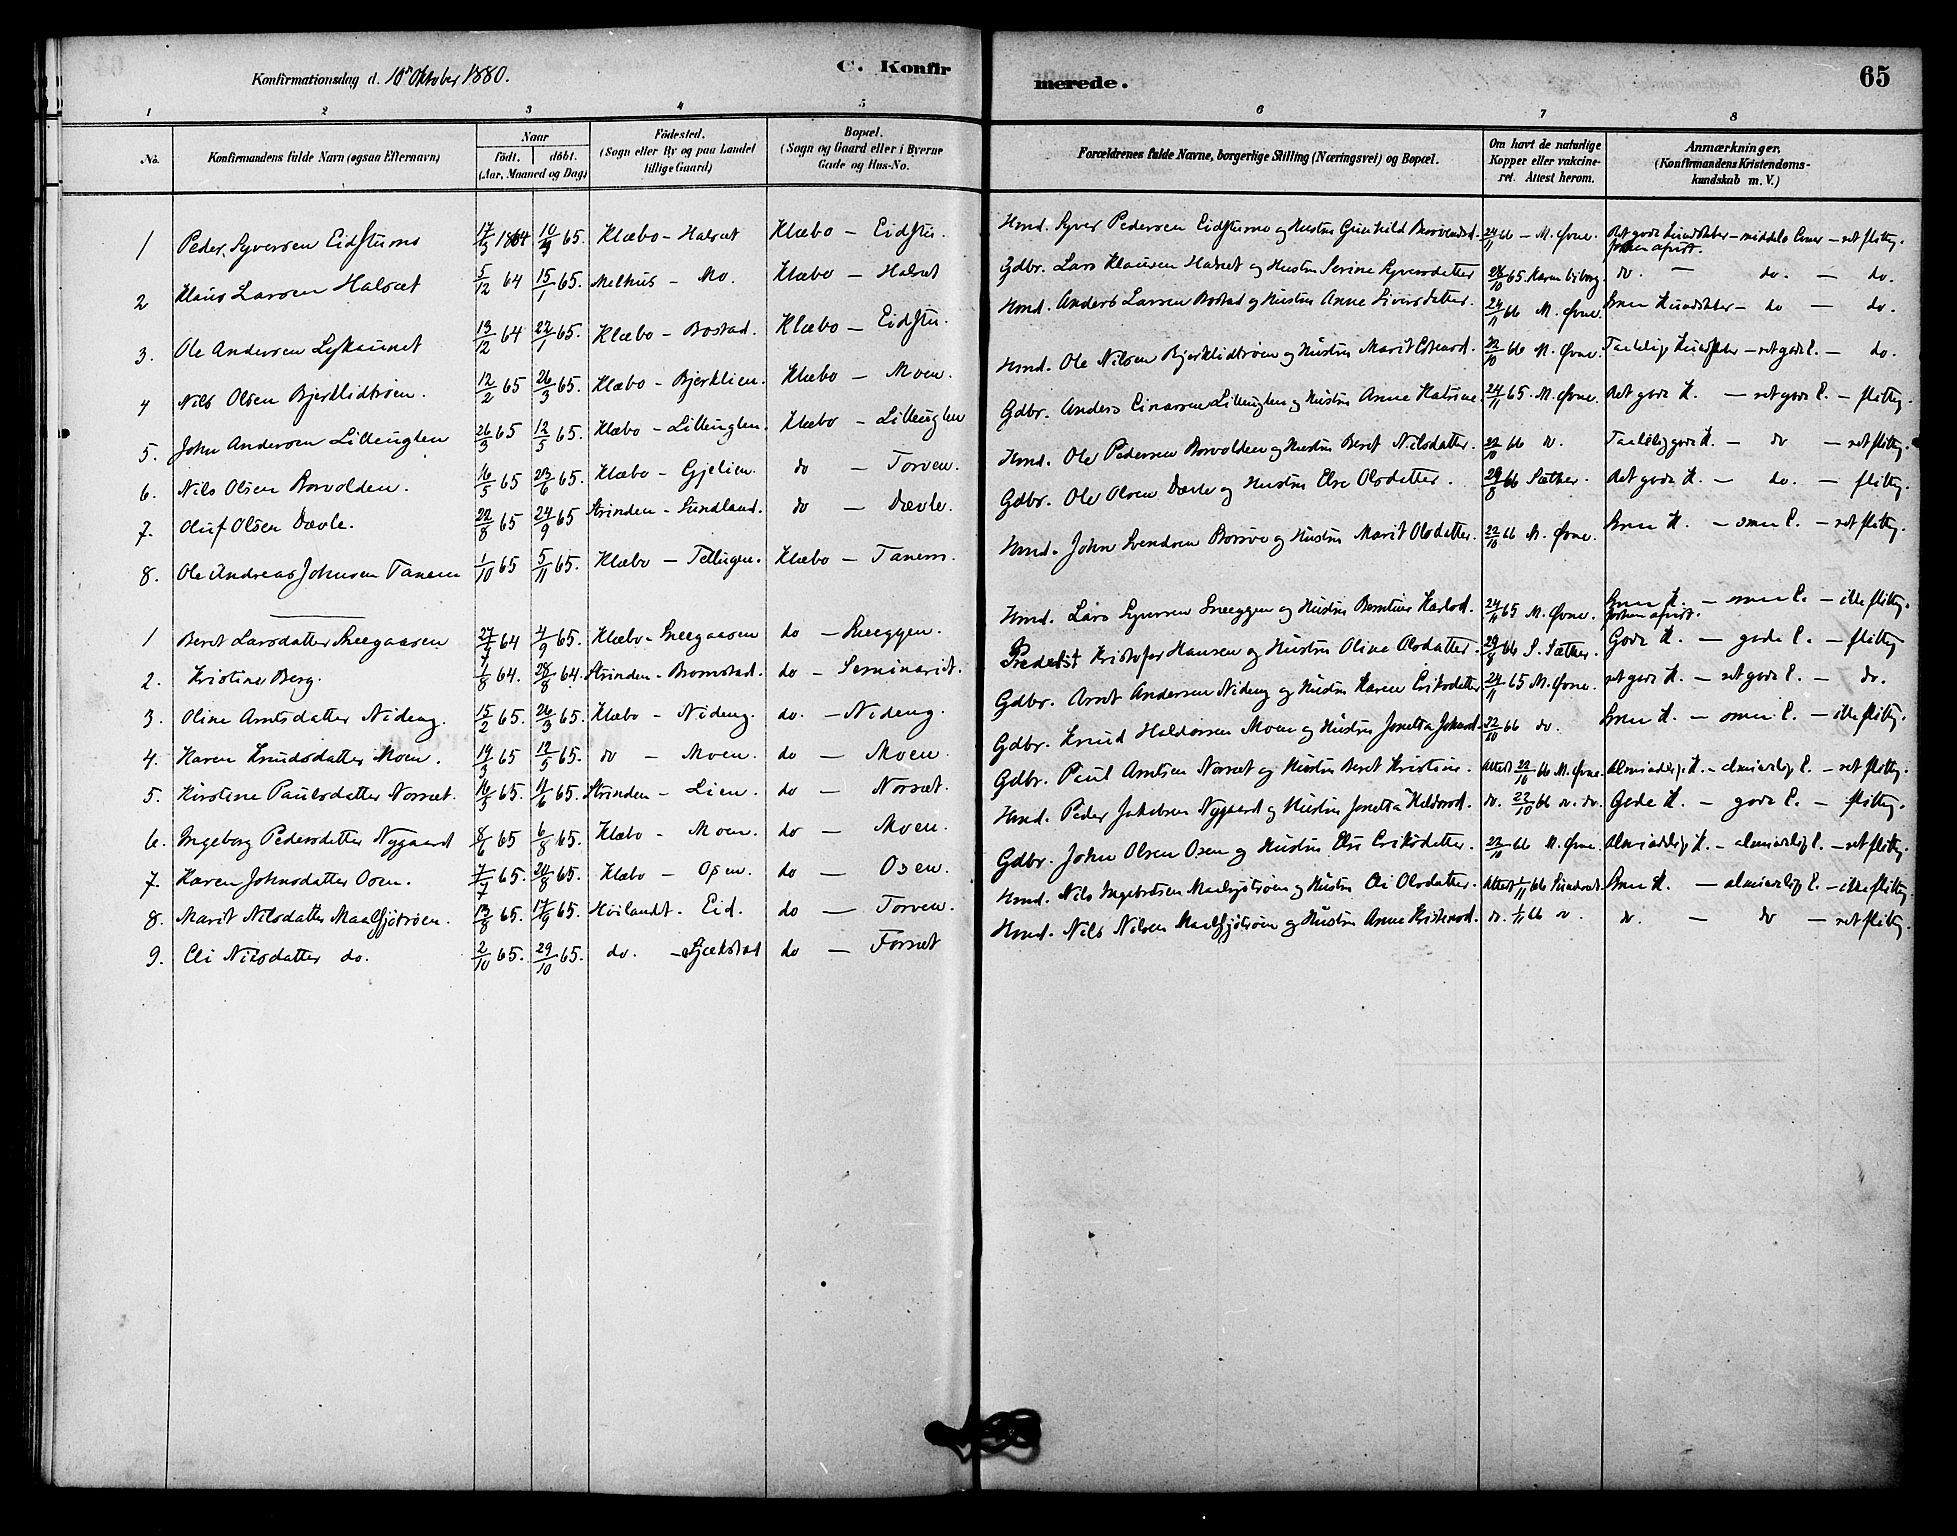 Konfirmationsdag d. 10de Oktober 1880.
C. Konfir
merede.
65
1 2 3 4 5 6 7 8
No. Konfirmandens fulde Navn (ogsaa Efternavn) Naar födt. döbt. (Aar, Maaned og Dag) Födested. (Sogn eller By og paa Landet tillige Gaard) Bopæl. (Sogn og Gaard eller i Byerne Gade og Hus-No. Forældrenes fulde Navne, borgerlige Stilling (Næringsvei) og Bopæl. Om havt de naturlige Kopper eller vakcineret. Attest herom. Anmærkninger. (Konfirmandens Kristendomskundskab m. V.)
1 Peder Syversen Eidstumo 1864 65. Klæbo - Halset Klæbo - Eidstu. Hmd. Syver Pedersen Eidstumo og Hustru Gunhild 24/11 66 - M. Øvne. Ret gode Kundskaber - middels Evner - ret flittig.
2 Klaus Larsen Halset 5/12 64 15/1 65. Melhus - Mo. Klæbo - Halset Gdbr. Lars Klausen Halset og Hustru Serine Syversdatter 65 Karen do. - do. - do.
3. Ole Andersen 13/12 64 22/1 65. Klæbo - Bostad. Klæbo - Eidstu. Hmd. Anders Larsen Bostad og Hustru Anne Siversdatter. 24/11 66 M. Øvne. Kundskaber - do - do.
4 Nils Olsen Bjerklidtrøen. 12/2 65 26/3 65. Klæbo - Bjerklien. Klæbo - Moen. Hmd. Ole Nilsen Bjerklidtrøen og Hustru Marit 22/10 66 M. Øvne. Taalelige Kundskaber - ret gode E. - do.
5. John Andersen Lilleuglen 26/3 65 12/5 65. Klæbo - Lilleuglen. Klæbo - Lilleuglen Gdbr. Anders Einarsen Lilleuglen og Hustru Anne Katrine. 24/11 65. M. Øvne. Ret gode K. - ret gode E. - flittig.
6. Nils Olsen Borvolden. 16/5 65 23/6 65. Klæbo - Gjelien. do - Torven. Hmd. Ole Pedersen Borvolden og Hustru Beret Nilsdatter. 22/10 66 do. Taalelig gode K. - do - ret flittig.
7. Oluf Olsen Dævle. 22/8 65 24/9 65 Strinden - Sundland. do - Dævle. Gdbr. Ole Olsen Dævle og Hustru Else Olsdatter. 29/8 66 Sæther. Ret gode K. - do. - flittig.
8. Ole Andreas Johnsen Tanem 1/10 65 5/11 65. Klæbo - Tellugen. Klæbo - Tanem. Hmd. John Svendsen Borsve og Hustru Marit Olsdatter. 22/10 66 M. Øvne. K. - E. - ret flittig.
1 Beret Larsdatter Sneegaasen 64 4/9 65. Klæbo - Sneegaasen do - Sneeggen. Hmd. Lars Syversen Sneeggen og Hustru Berntine 24/11 65 M. Øvne. K. - E. - ikke flittig.
2. Kristine Berg. 64. 28/8 64. Strinden - Bromstad. do - Seminariet. Kristofer Hansen og Hustru Oline Olsdatter. 29/8 66 S. Sæther. Gode K. - gode E. - flittig.
3. Oline Arntsdatter Nideng. 15/2 65. 26/3 65. Klæbo - Nideng. do. - Nideng. Gdbr. Arnt Andersen Nideng og Hustru Karen Eriksdatter 24/11 65 M. Øvne. ret gode K. - ret gode E. - do.
4. Karen Knudsdatter Moen. 19/3 65 12/5 65. do - Moen. do - Moen. Gdbr. Knud Haldorsen Moen og Hustru Jonetta 22/10 66 do. K. - E. - ikke flittig.
5. Kirstine Paulsdatter Norset. 16/5 65. 11/6 65. Strinden - Lien. do - Norset. Gdbr. Paul Arntsen Norset og Hustru Beret Kristine. Attest 22/10 66 M. Øvne. Almindelige K. - almindelige E. - ret flittig.
6. Ingeborg Pedersdatter Nygaard 8/6 65 6/8 65. Klæbo - Moen. do - Moen. Hmd. Peder Jakobsen Nygaard og Hustru Jonetta do. 22/10 66 do. do. Gode K. - gode E. - flittig.
7. Karen Johnsdatter Osen. 65. 65. Klæbo - Osen. do - Osen. Gdbr. John Olsen Osen og Hustru Else Eriksdatter. 22/10 66 M. Øvne. Almindelige K. - almindelige E. - ret flittig.
8. Marit Nilsdatter Maalsjötrøen. 13/8 65. 17/9 65. Höilandt. Eid. do - Torven. Hmd. Nils Ingebretsen Maalsjötrøen og Hustru Eli Olsdatter. Attest 1/11 66 K. - almindelige E. - ikke flittig.
9. Eli Nilsdatter do. 2/10 65. 29/10 65. do. do - Forset Hmd. Nils Nilsen Maalsjötrøen og Hustru Anne do. 1/11 66 do. do. - do - ret flittig.